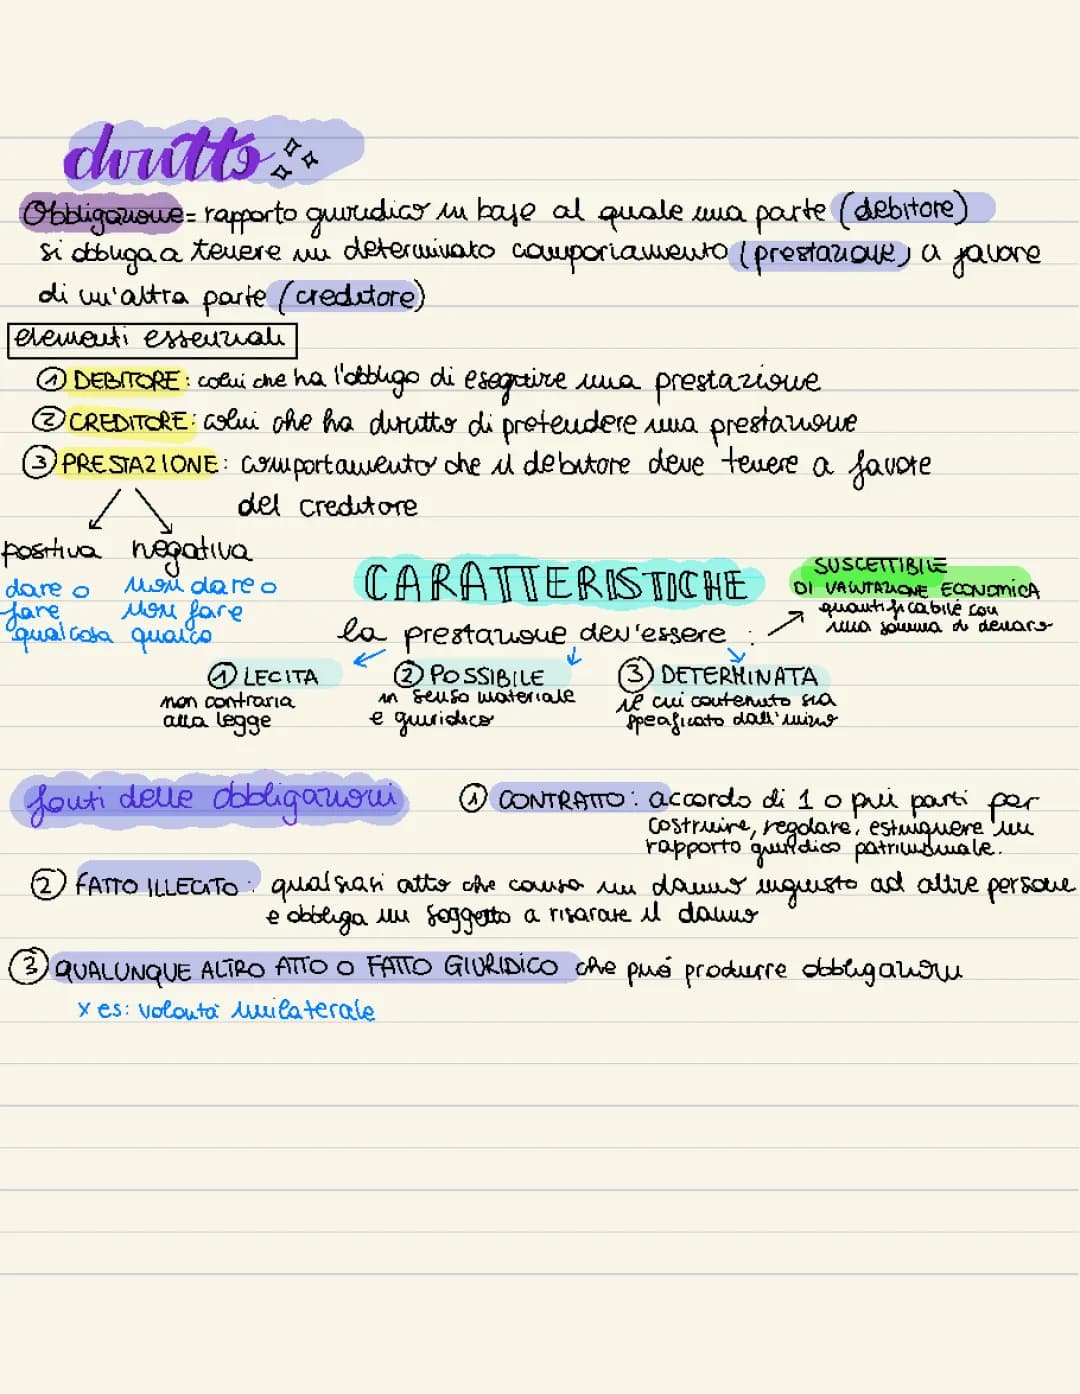 diritto
Obbligazione = rapporto giuridico in base al quale una parte (debitore)
si obbliga a tenere un determinato comportamento (prestazione) a favore
di un'altra parte (creditore)
elementi essenziali
① DEBITORE: colui che ha l'obbligo di eseguire una prestazione
② CREDITORE: colui che ha diritto di pretendere una prestazione
③ PRESTAZIONE: comportamento che il debitore deve tenere a favore
del creditore
positiva negativa
dare o non dare o
fare non fare
qualcosa qualco
CARATTERISTICHE
la prestazione dev'essere :
SUSCETTIBILE
DI VALUTAZIONE ECONOMICA
quantificabile con
una somma di denaro
① LECITA
non contraria
alla legge
② POSSIBILE
in senso materiale
e giuridico
③ DETERMINATA
il cui contenuto sia
specificato dall'inizio
fonti delle obbligazioni
① CONTRATTO: accordo di 1 o più parti per
costruire, regolare, estinguere un
rapporto giuridico patrimoniale.
② FATTO ILLECITO: qualsiasi atto che causa un danno ingiusto ad altre persone
e obbliga un soggetto a risarcire il danno
③ QUALUNQUE ALTRO ATTO O FATTO GIURIDICO che può produrre obbligazioni
x es: volontà unilaterale